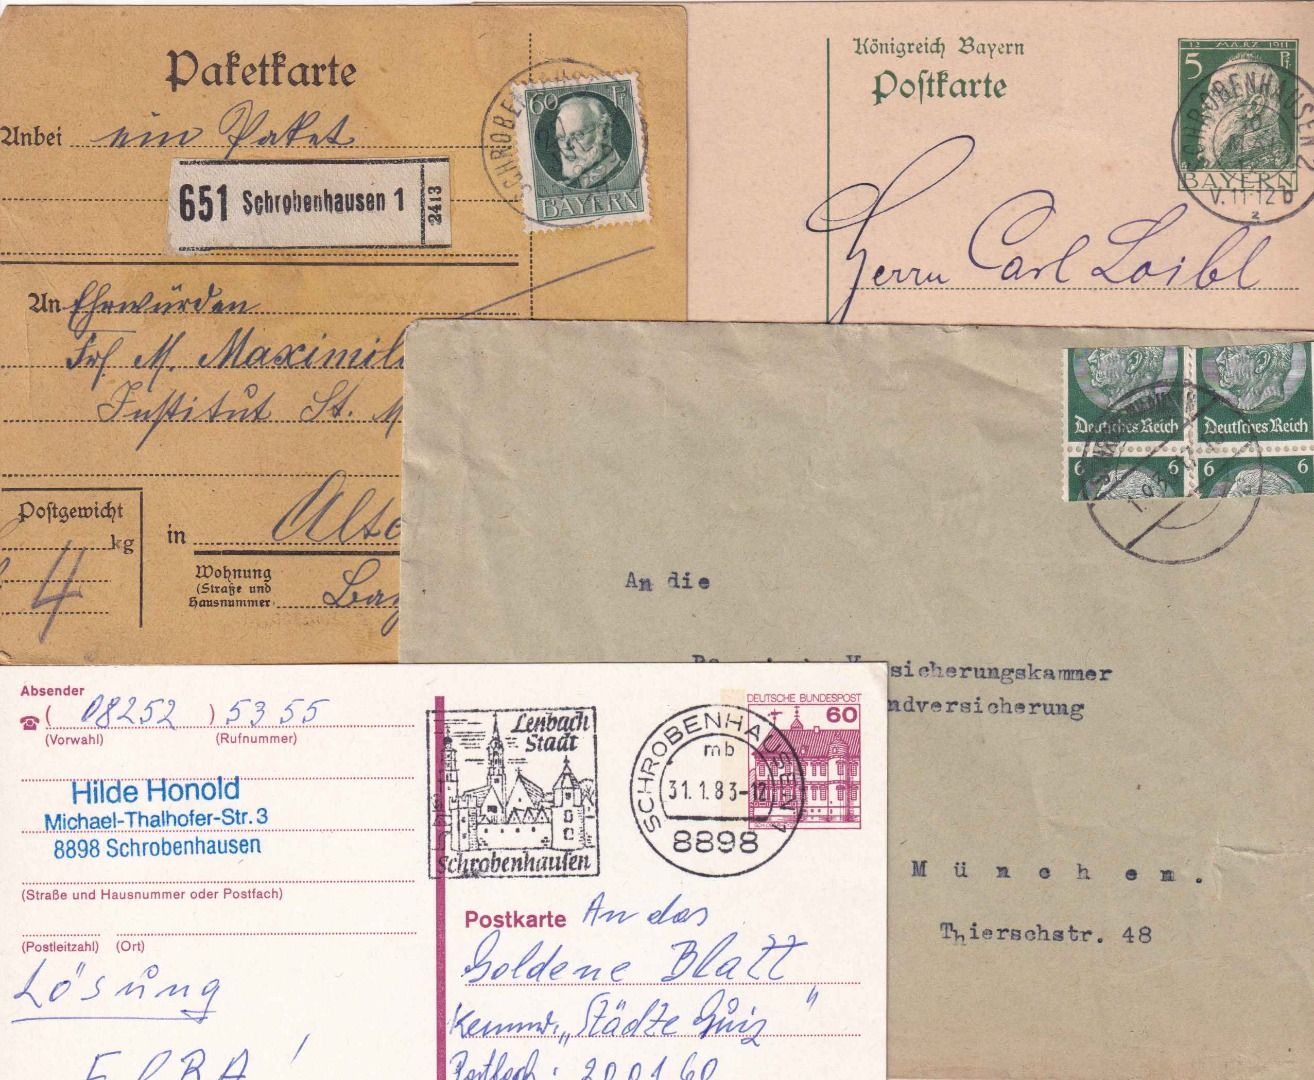 Paketkarte
Anbei ein Paket
651 Schrobenhausen 1 2413
60 Pf
BAYERN
An Ehrwürden
Frl. M. Maximil
Institut St. M
Postgewicht
kg
4
in
Wohnung
(Straße und
Hausnummer
Königreich Bayern
Postkarte
12. MÄRZ 1911
5 Pf
BAYERN
SCHROBENHAUSEN 2
V. 11-12 b
2
Herrn Carl Loibl
Deutsches Reich Deutsches Reich
6 6 6
An die
sicherungskammer
ndversicherung
München.
Thierschstr. 48
Absender
( 08252 ) 53 55
(Vorwahl) (Rufnummer)
Hilde Honold
Michael-Thalhofer-Str. 3
8898 Schrobenhausen
(Straße und Hausnummer oder Postfach)
(Postleitzahl) (Ort)
Lösung
Lenbach
Stadt
Schrobenhausen
SCHROBENHAUSEN 1
mb
31.1.83-12
8898
DEUTSCHE BUNDESPOST
60
Postkarte An das
Goldene Blatt
Kennw. „Städte Quiz"
Postfach: 200160